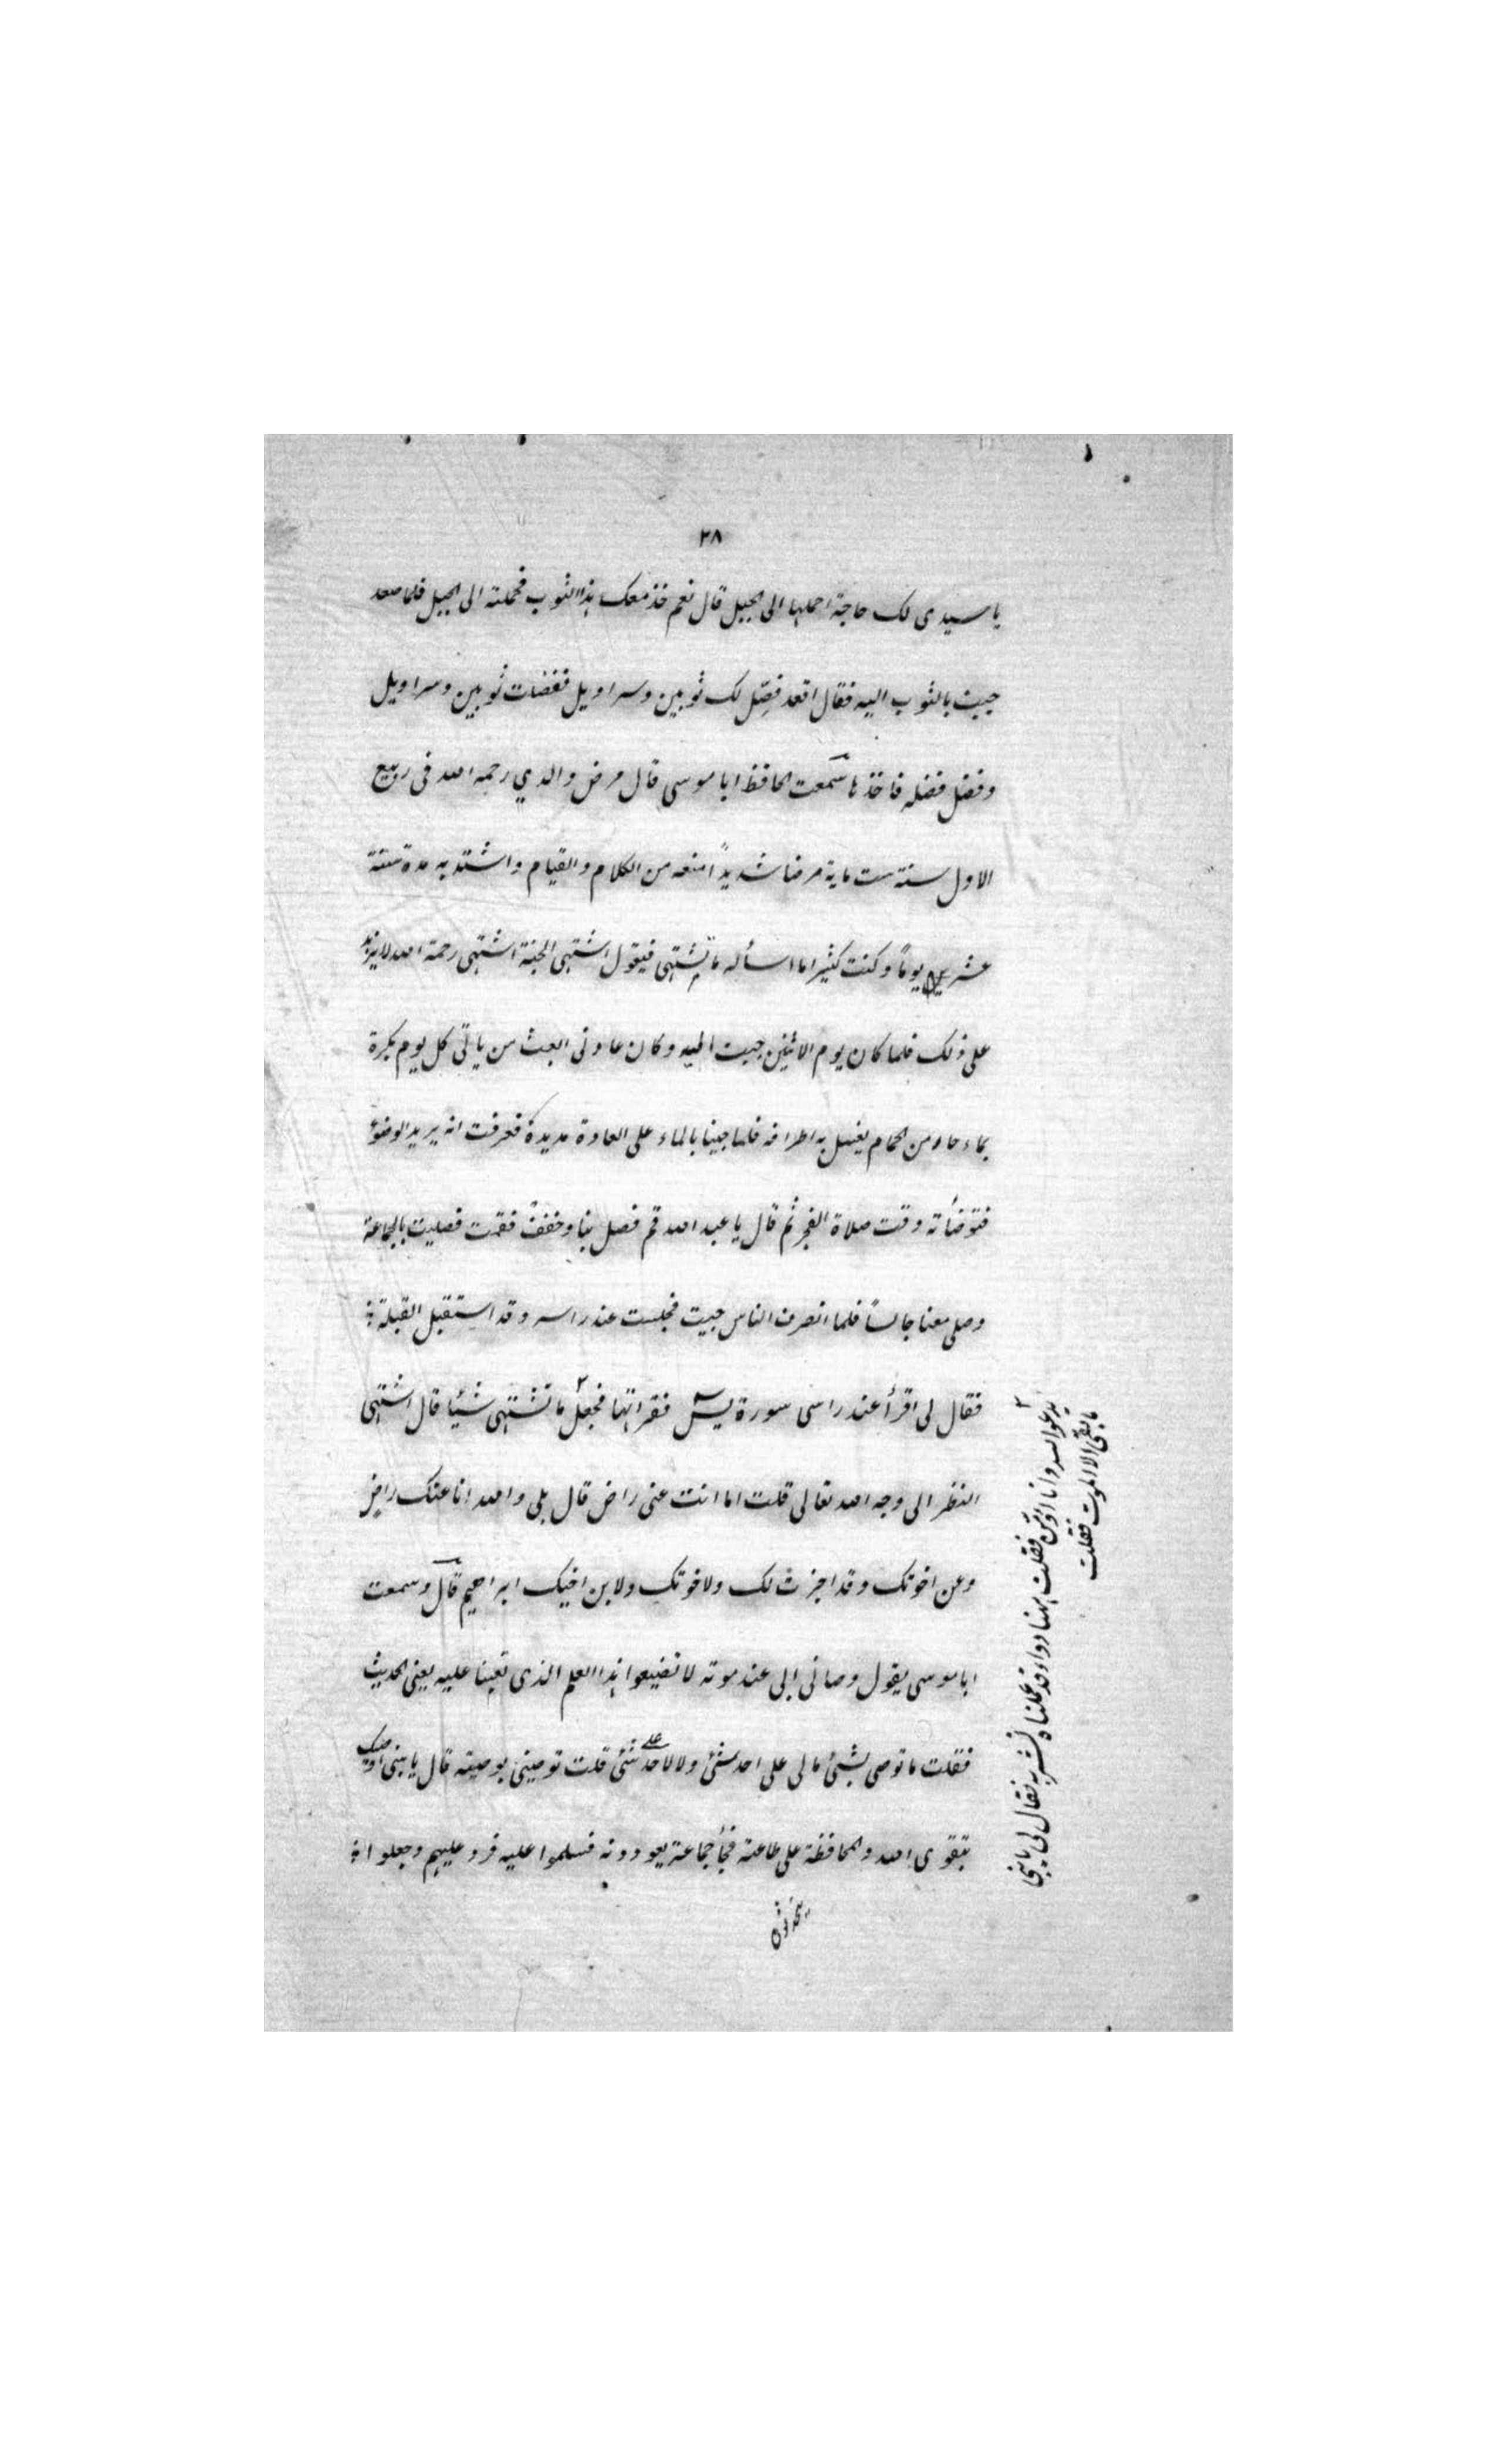 ٢٨
يا سيدى لك حاجة احملها الى الجبل قال نعم خذ معك هذا الثوب فحملته الى الجبل فلما صعد
جيت بالثوب اليه فقال اقعد فصّل لك ثوبين وسراويل ففضلت ثوبين وسراويل
وفضل فضله فاخذها سمعت الحافظ ابا موسى قال مرض والدي رحمه الله فى ربيع
الاول سنة ست ماية مرضا شديداً منعه من الكلام والقيام واشتد به مدة ستة
عشر يوماً وكنت كثيرا ما اسأله ما تشتهى فيقول اشتهى الجنة اشتهى رحمة الله لا يزيد
على ذلك فلما كان يوم الاثنين جيت اليه وكان عادتى ابعث من ياتى كل يوم بكرة
بماء حار من الحمام يغسل به اطرافه فلما جينا بالماء على العادة مد يده فعرفت انه يريد الوضوء
فتوضأته وقت صلاة الفجر ثم قال يا عبد الله قم فصل بنا وخفف فقمت فصليت بالجماعة
وصلى معنا جالساً فلما انصرف الناس جيت فجلست عند راسه وقد استقبل القبلة
فقال لى اقرأ عند راسى سورة يس فقراتها فجعل ٢ ما تشتهى شيئا قال اشتهى
النظر الى وجه الله تعالى قلت اما انت عنى راض قال بلى والله انا عنك راض
وعن اخوتك وقد اجزت لك ولاخوتك ولابن اخيك ابراهيم قال وسمعت
ابا موسى يقول وصانى ابى عند موته لا تضيعوا هذا العلم الذى تعبنا عليه يعنى الحديث
فقلت ما توصى بشئ مالى على احد شئ ولا لاحد على شئ قلت توصينى بوصية قال يا بنى اوصيك
بتقوى الله والمحافظة على طاعته فجأ جماعة يعودونه فسلموا عليه فرد عليهم وجعلوا
يتحدثون
٢ يدعو الله وانا اؤمن فقلت ههنا دواء قد عملناه تشربه فقال لى يا بنى
ما بقى الا الموت فقلت